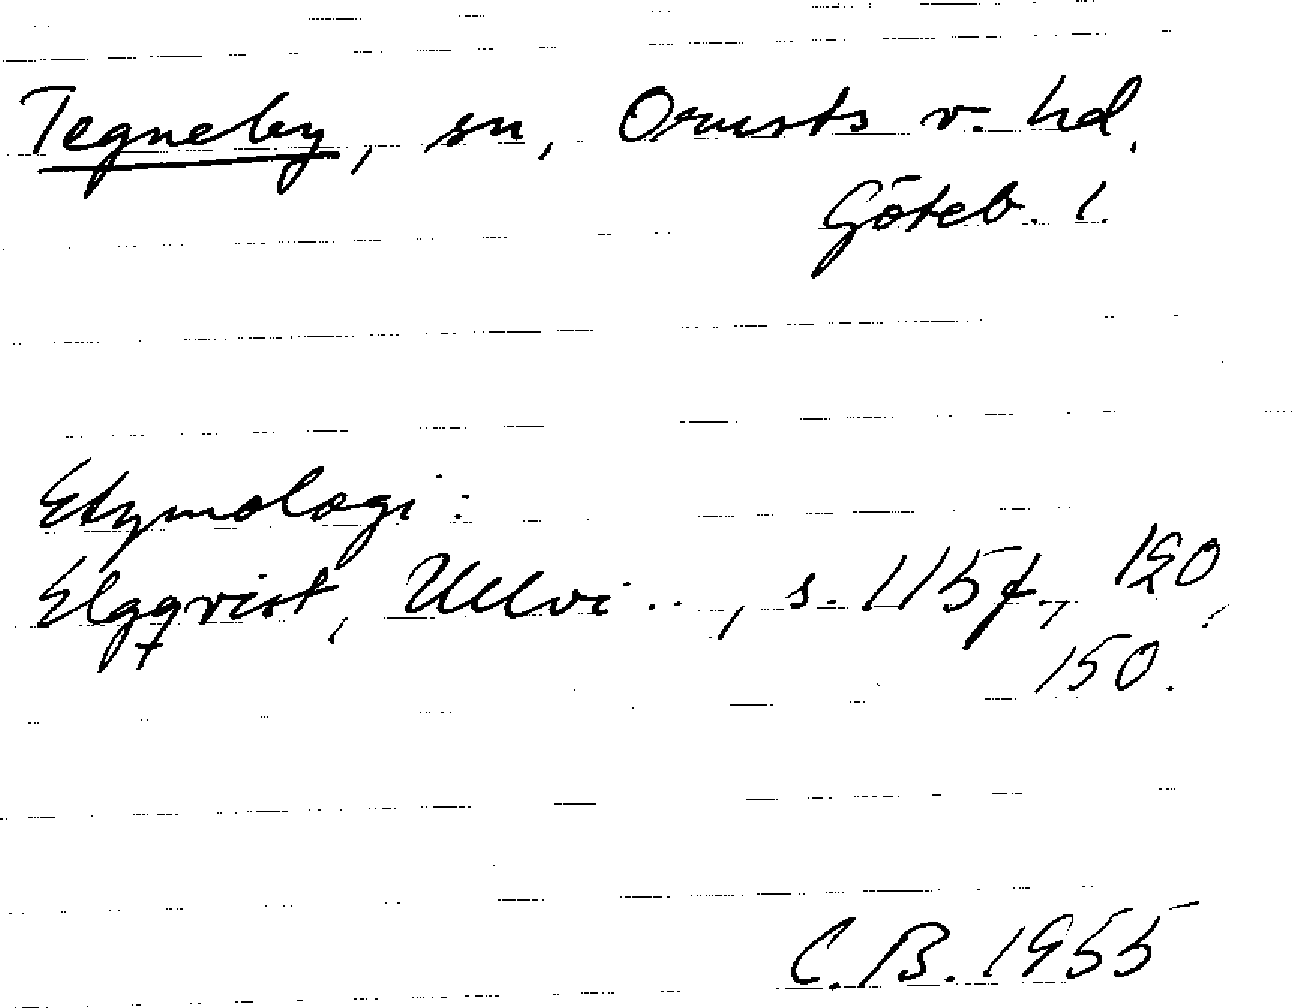 Tegneby, sn, Orusts v. hd,
Göteb. l.
Etymologi:
Elgqvist, Ullvi .., s. 115f., 120,
150.
C. B. 1955